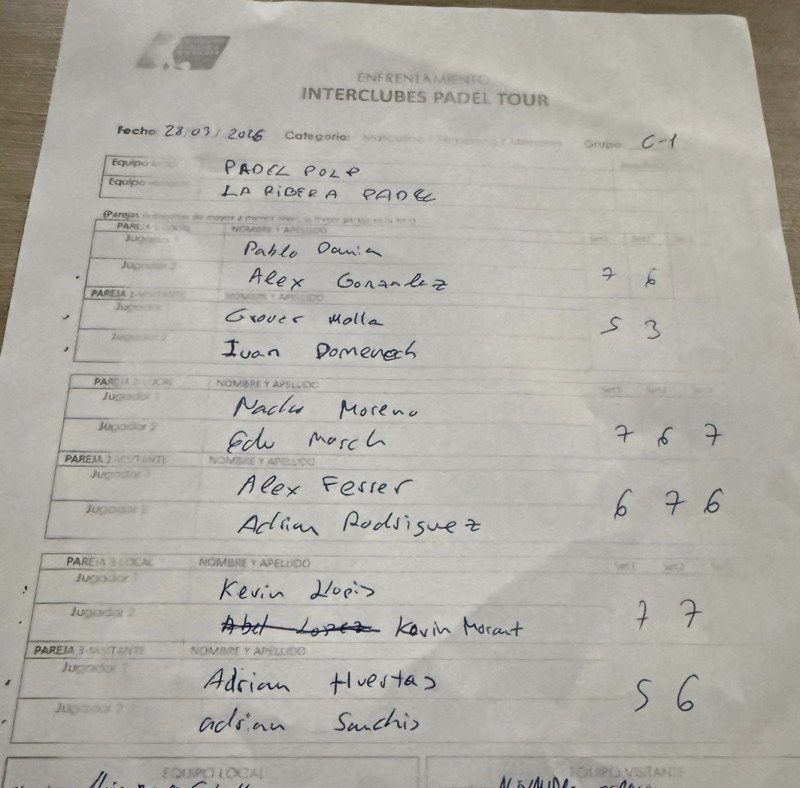 ENFRENTAMIENTO
INTERCLUBES PADEL TOUR
Fecha 28/03/2026 Categoria: Grupo C-1
Equipo PADEL POLP
Equipo LA RIBERA PADEL
PAREJA 1 NOMBRE Y APELLIDO
Jugador 1 Pablo
Jugador 2 Alex Gonzalez 7 6
PAREJA 1-VISITANTE NOMBRE Y APELLIDO
Jugador Grover Molla 5 3
Jugador 2 Ivan Domenech
PAREJA 2-LOCAL NOMBRE Y APELLIDO Set1 Set2
Jugador 1 Nacho Moreno
Jugador 2 Edu March 7 6 7
PAREJA 2-VISITANTE NOMBRE Y APELLIDO
Jugador 1 Alex Ferrer 6 7 6
Jugador 2 Adrian Rodriguez
PAREJA 3-LOCAL NOMBRE Y APELLIDO Set1 Set2
Jugador 1 Kevin Llopis
Jugador 2 Abel Lopez Kevin Morant 7 7
PAREJA 3-VISITANTE NOMBRE Y APELLIDO
Jugador 1 Adrian Huertas 5 6
Jugador 2 adrian Sanchis
EQUIPO LOCAL EQUIPO VISITANTE